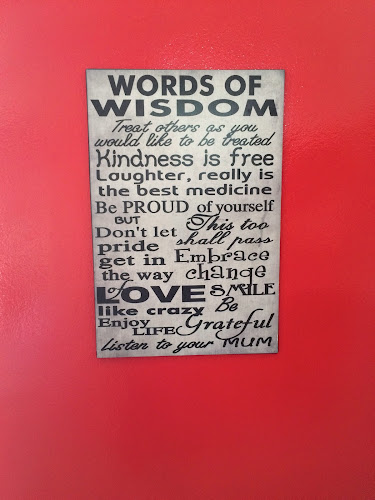 WORDS OF
WISDOM
Treat others as you
would like to be treated
Kindness is free
Laughter, really is
the best medicine
Be PROUD of yourself
BUT
Don't let
pride
get in
the way
of
This too
shall pass
Embrace
change
LOVE SMILE
like crazy Be
Enjoy
LIFE Grateful
Listen to your MUM